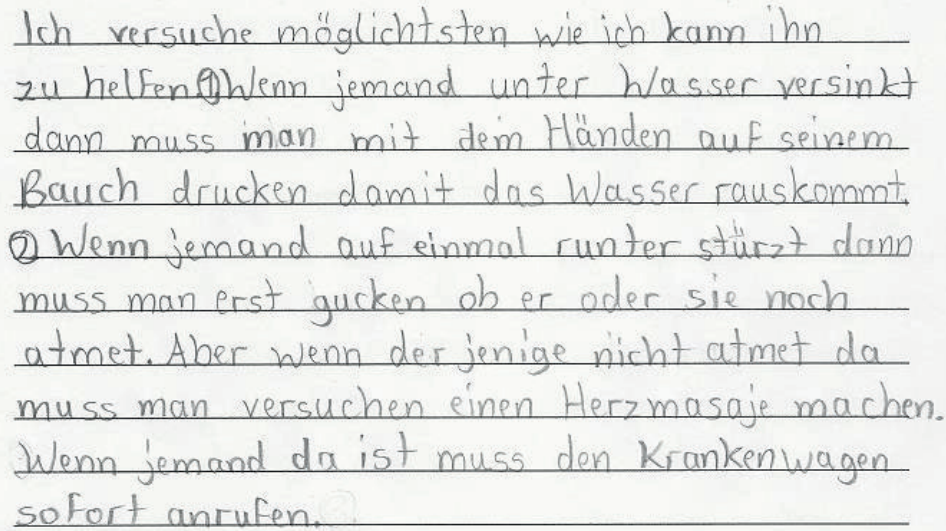 Ich versuche möglichtsten wie ich kann ihn
zu helfen①Wenn jemand unter Wasser versinkt
dann muss man mit dem Händen auf seinem
Bauch drucken damit das Wasser rauskommt.
② Wenn jemand auf einmal runter stürzt dann
muss man erst gucken ob er oder sie noch
atmet. Aber wenn der jenige nicht atmet da
muss man versuchen einen Herzmasaje machen.
Wenn jemand da ist muss den Krankenwagen
sofort anrufen.